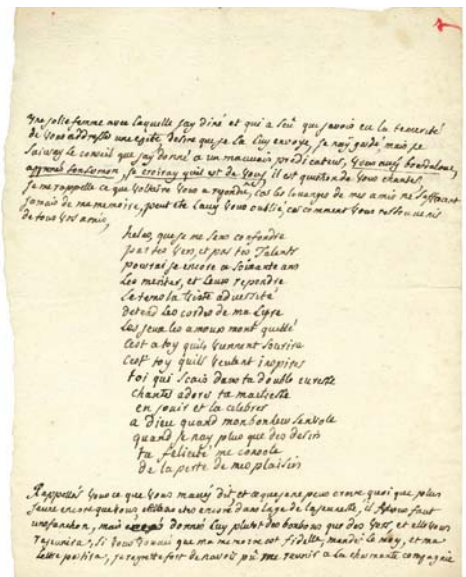 une jolie femme avec laquelle jay diné et qui a sçû que javois eu la temerité
de vous addresser une epitre desire que je la luy envoye, je nay garde mais je
suivray le conseil que jay donné a un mauvais predicateur, vous avez bourdaloue,
son sermon, je croiray quil est de vous, il est question de vous chanter,
je me rappelle ce que voltaire vous a repondu, car les louanges de mes amis ne seffacent
jamais de ma memoire, peut etre lavez vous oublié, car comment vous ressouvenir
de tous vos amis,
helas, que je me sens confondre
par tes vers, et par tes talents
pourrai je encore a soixante ans
les meriter, et leurs repondre
le tems la triste adversité
detend les cordes de ma lyre
les jeux les amours mont quitté
cest a toy quils viennent sourire
cest toy quils veulent inspirer
toi qui scais dans ta double
chanter adorer ta maitresse
en jouir et la celebrer
a Dieu quand mon bonheur senvole
quand je nay plus que des desirs
ta felicité me console
de la perte de mes plaisirs
Rappellés vous ce que vous mavez dit et ce que je ne peux croire quoi que plus
jeune encore que vous, encore dans lage de la jeunesse, il vous faut
une fanchon, mais donnés luy plutot des bonbons que des vers, et elle vous
rajeunira, si vous trouvés que ma memoire est fidelle, mandés le moy, et ma
lettre partira, je regrette fort de navoir pû me reunir a la charmante compagnie